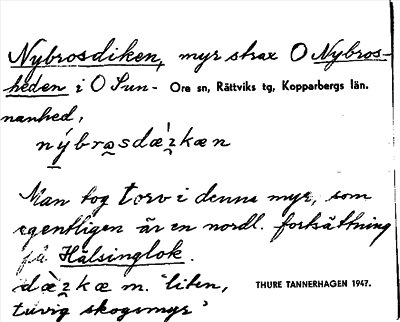 Nybrosdiken, myr strax O Nybros-
heden i O Sun- Ore sn, Rättviks tg, Kopparbergs län.
nanhed,
nýbra̱sdæ̀ɪ̯kæn
Man tog torv i denna myr, som
egentligen är en nordl. fortsättning
på Hälsinglok.
dæ̀ɪ̯kæ m. "liten, THURE TANNERHAGEN 1947.
tuvig skogsmyr"